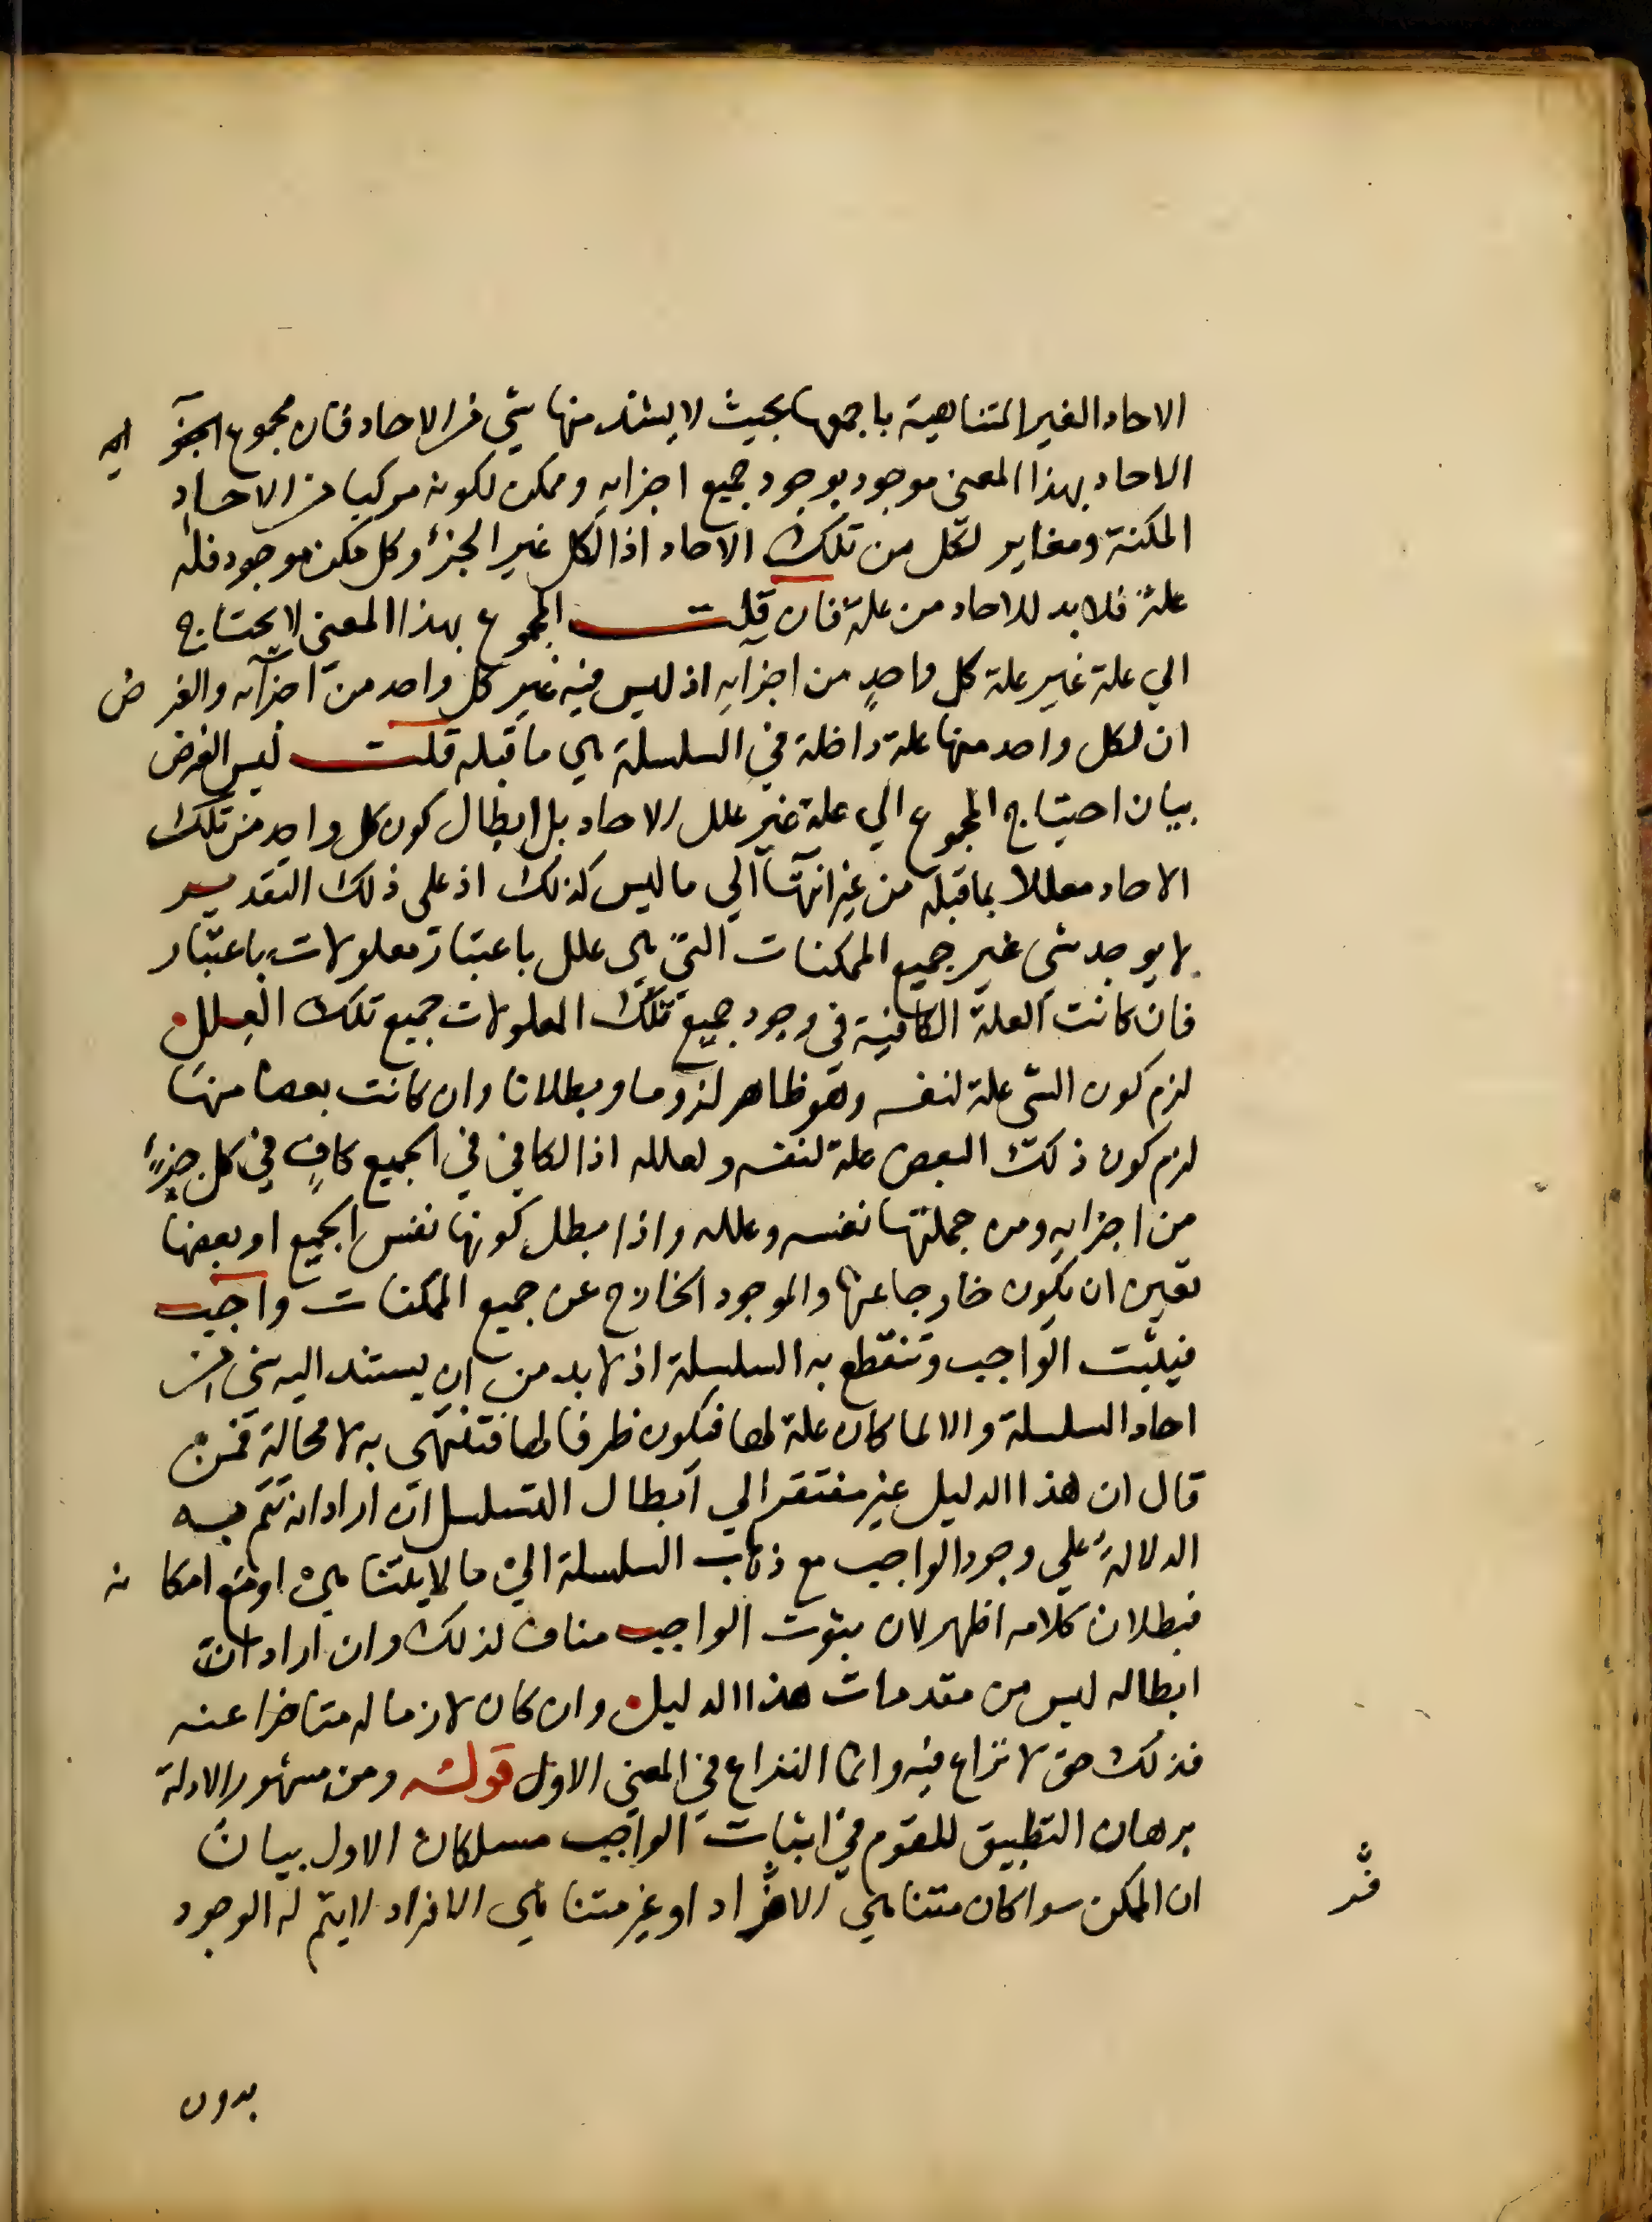 الاحاد الغير المتناهية باجمعها بحيث لا يشذ منها شئ من الاحاد فان مجموع
الاحاد بهذا المعنى موجود بوجود جميع اجزايه وممكن لكونه مركبا من الاحاد
الممكنة ومغاير لكل من تلك الاحاد اذ الكل غير الجزؤ وكل ممكن موجود فله
علة فلا بد للاحاد من علة فان قلت المجموع بهذا المعنى لا يحتاج
الي علة غير علة كل واحدٍ من اجزآيه اذ ليس فيه غير كل واحد من اجزآيه والفرض
ان لكل واحد منها علة داخلة في السلسلة هي ما قبله قلت ليس الغرض
بيان احتياج المجموع الي علة غير علل الاحاد بل ابطال كون كل واحد من تلك
الاحاد معللا بما قبله من غير انتهآ الي ما ليس كذلك اذ على ذلك التقدير
لا يوجد شي غير جميع الممكنات التي هي علل باعتبار معلولات باعتبار
فان كانت العلة الكافية في وجود جميع تلك المعلولات جميع تلك العلل
لزم كون الشى علة لنفسه وهو ظاهر لزوما وبطلانا وان كانت بعضا منها
لزم كون ذلك البعض علة لنفسه ولعلله اذ الكافي في الجميع كافٍ في كل جزءٍ
من اجزايه ومن جملتها نفسه وعلله واذا بطل كونها نفس الجميع او بعضها
تعين ان يكون خارجا عنها والموجود الخارج عن جميع الممكنات واجب
فيثبت الواجب وتنقطع به السلسلة اذ لا بد من ان يستند اليه شي من
احاد السلسلة والا لما كان علة لها فيكون طرفا لها فتنتهى به لا محالة فمن
قال ان هذا الدليل غير مفتقر الي ابطال التسلسل ان اراد انه تتم به
الدلالة علي وجود الواجب مع ذهاب السلسلة الي ما لا يتناهى او مع امكانه
فبطلان كلامه اظهر لان ثبوت الواجب مناف لذلك وان اراد ان
ابطاله ليس من مقدمات هذا الدليل وان كان لازما له متاخرا عنه
فذلك حق لا نزاع فيه وانما النزاع في المعنى الاول قوله ومن مشهور الادلة
برهان التطبيق للقوم في اثبات الواجب مسلكان الاول بيان
ان الممكن سوا كان متناهي الافراد او غير متناهي الافراد لا يتم له الوجود
بدون